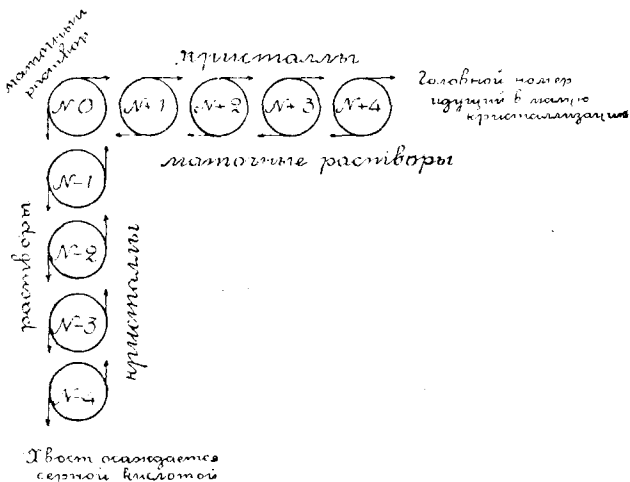 маточный
раствор
кристаллы
N0 N+1 N+2 N+3 N+4
Головной номер
идущий в малую
кристаллизацию
маточные растворы
N-1
N-2
N-3
N-4
растворы
кристаллы
Хвост осаждается
серной кислотой